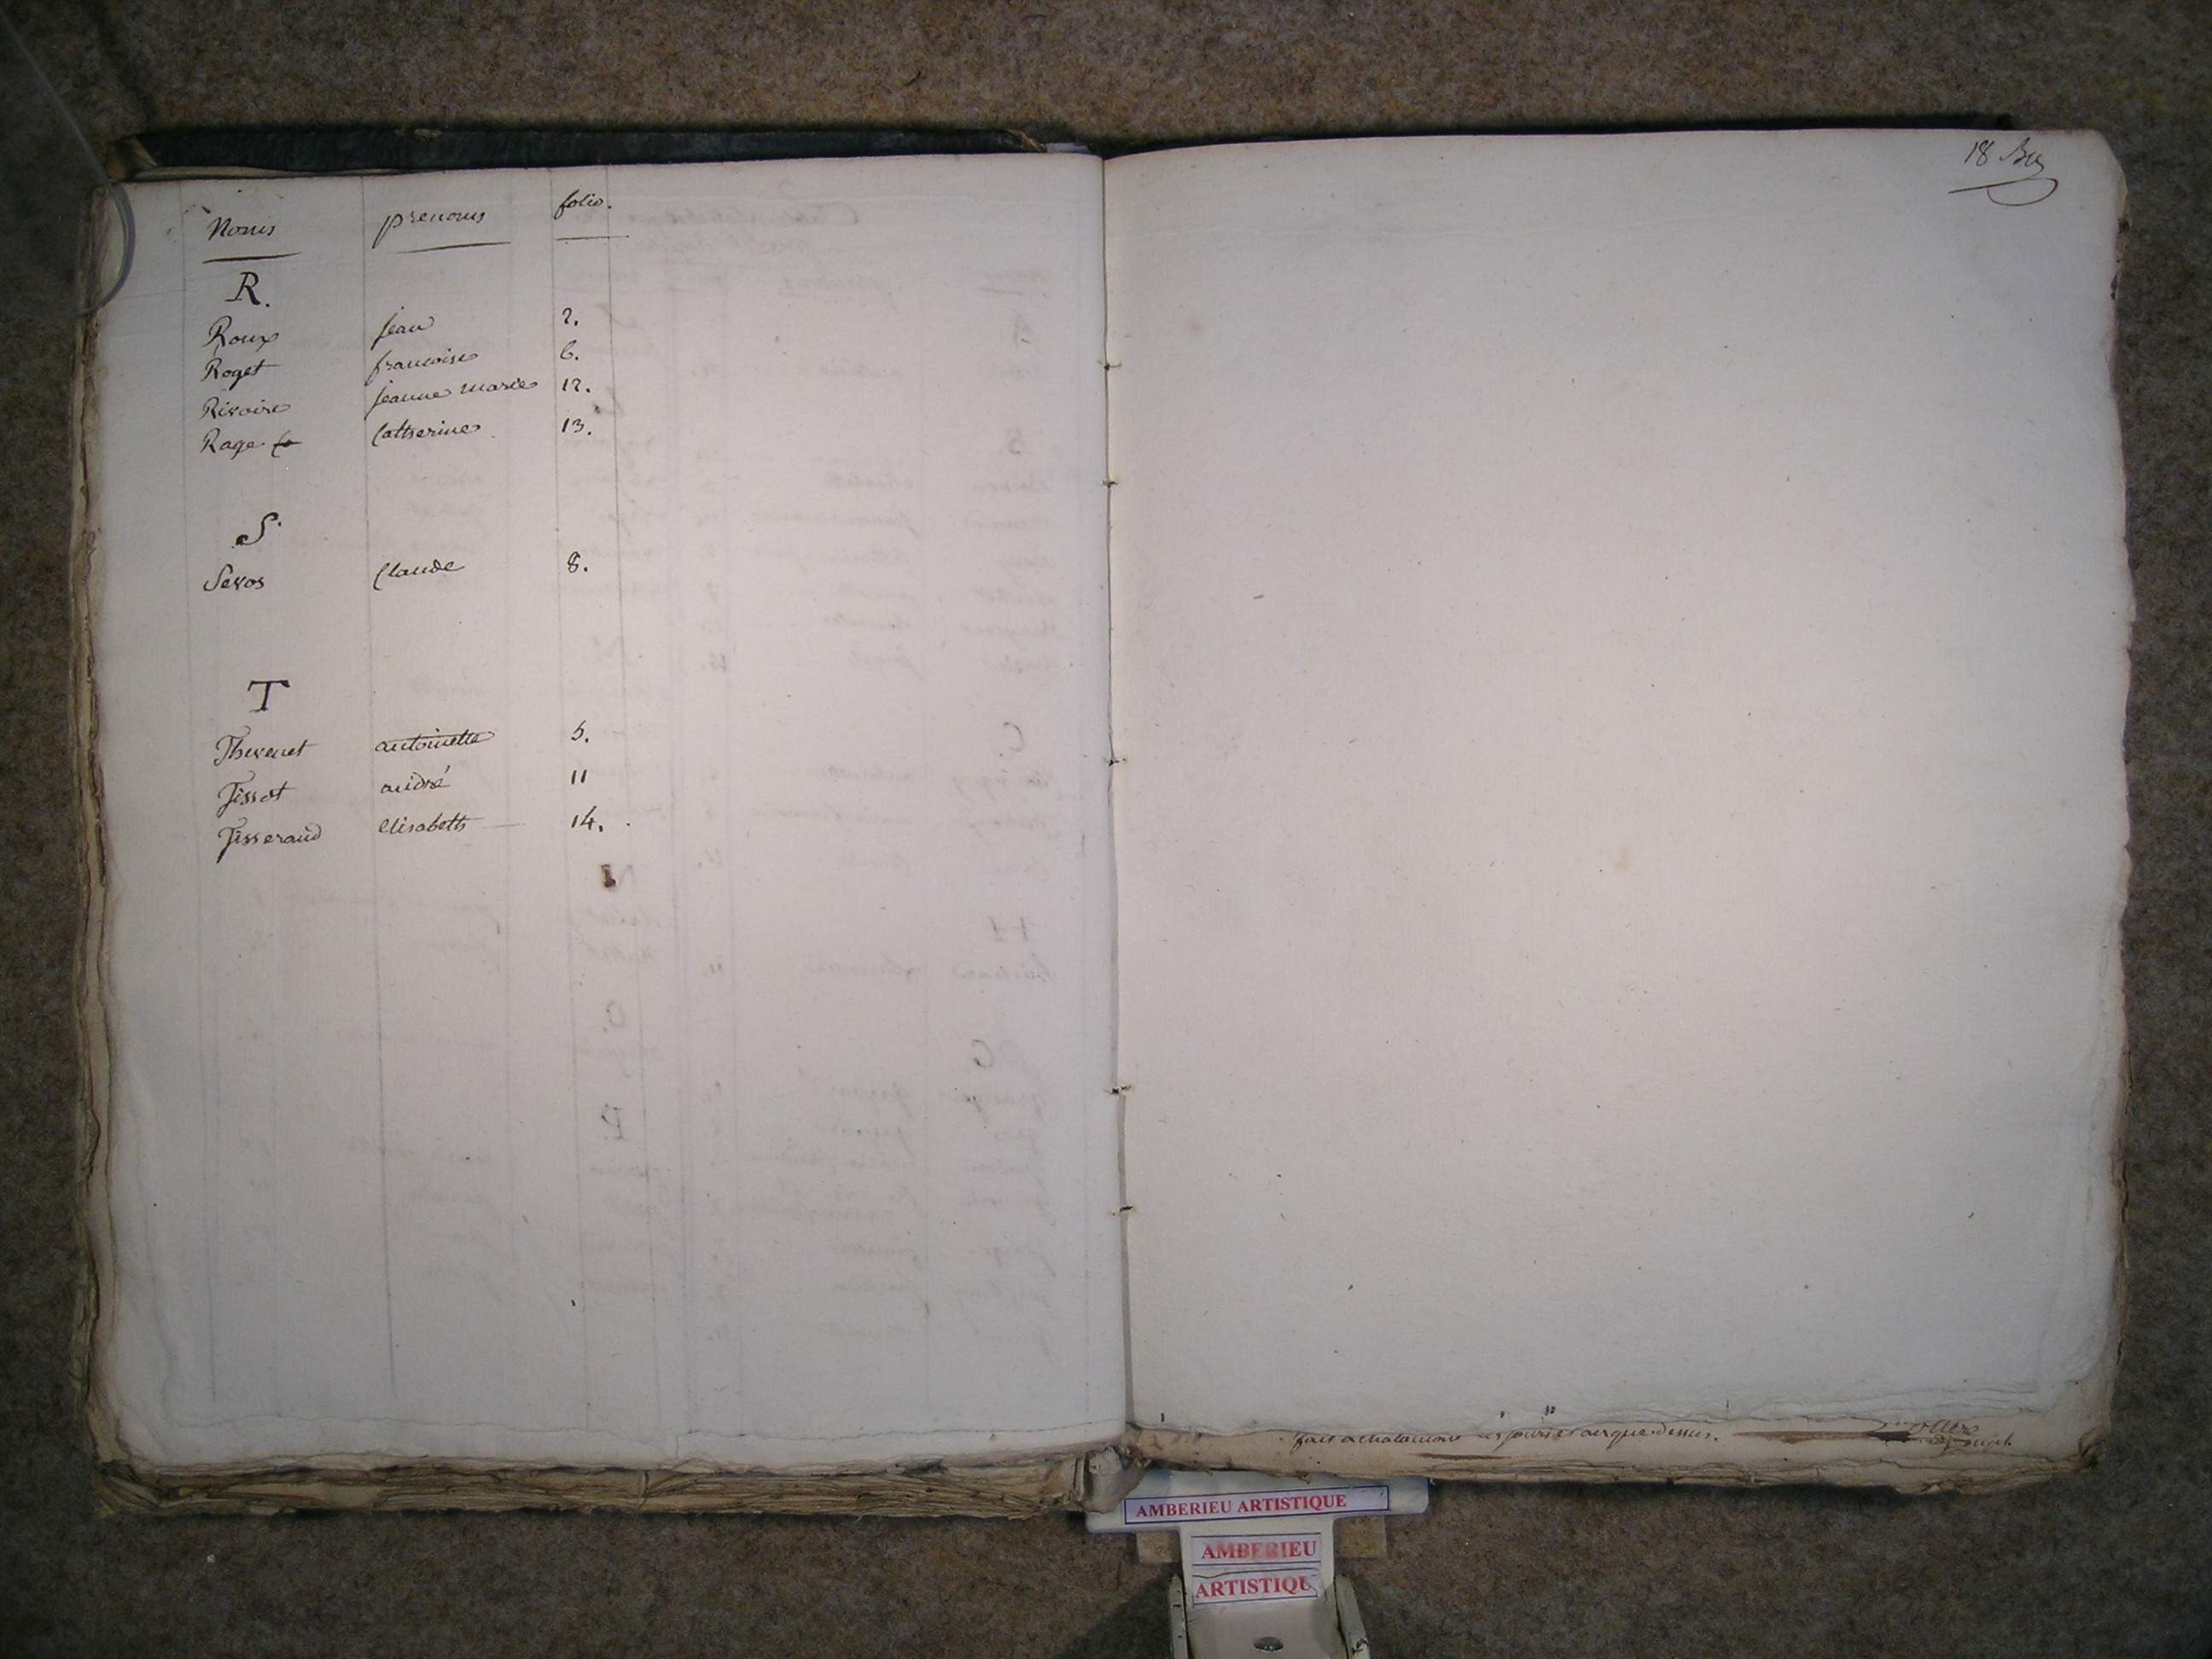 Noms prenoms folio.
R.
Roux jean 2.
Roget francoise 6.
Rivoire jeanne marie 12.
Rage Catherine 13.
S.
Sevos Claude 8.
T
Thevenet antoinette 5.
Tissot andré 11
Tisserand elisabeth 14.
18 Bis
fait a chatamont jours et an que dessus.
AMBERIEU ARTISTIQUE
AMBERIEU
ARTISTIQU